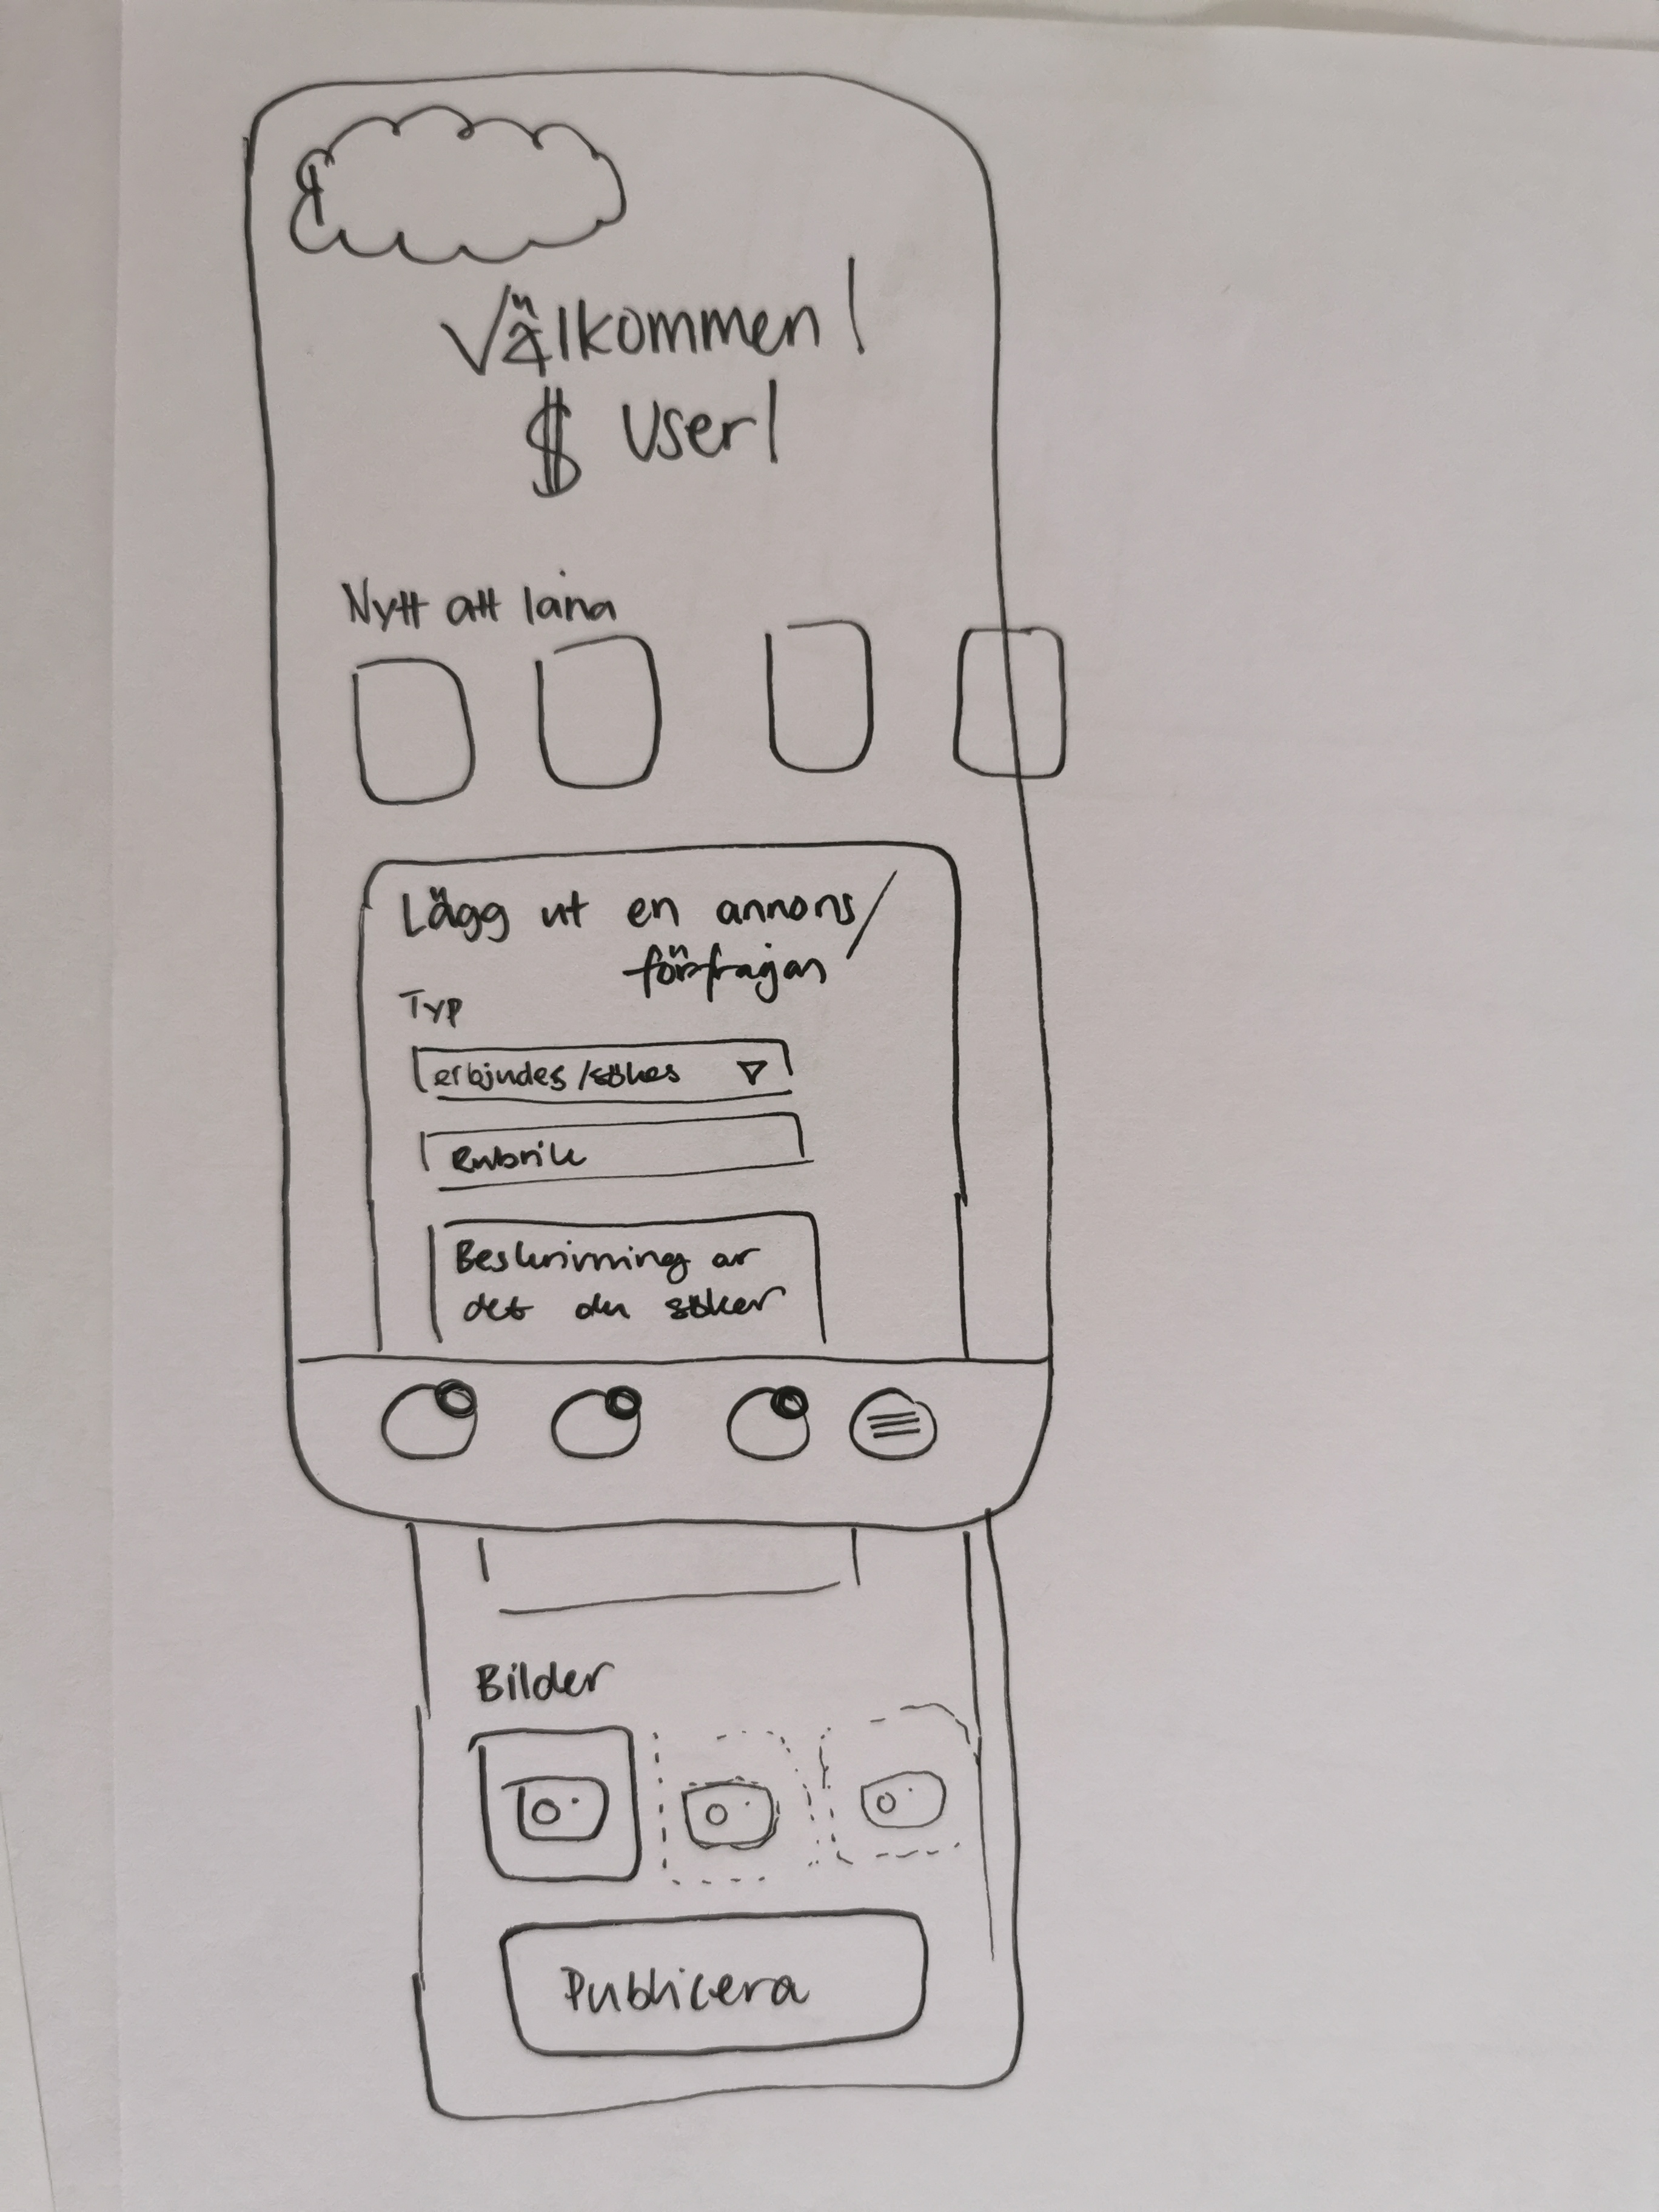 Välkommen!
$ User!
Nytt att låna
Lägg ut en annons/
förfrågan
Typ
erbjudes/sökes
Rubrik
Beskrivning av
det du söker
Bilder
Publicera